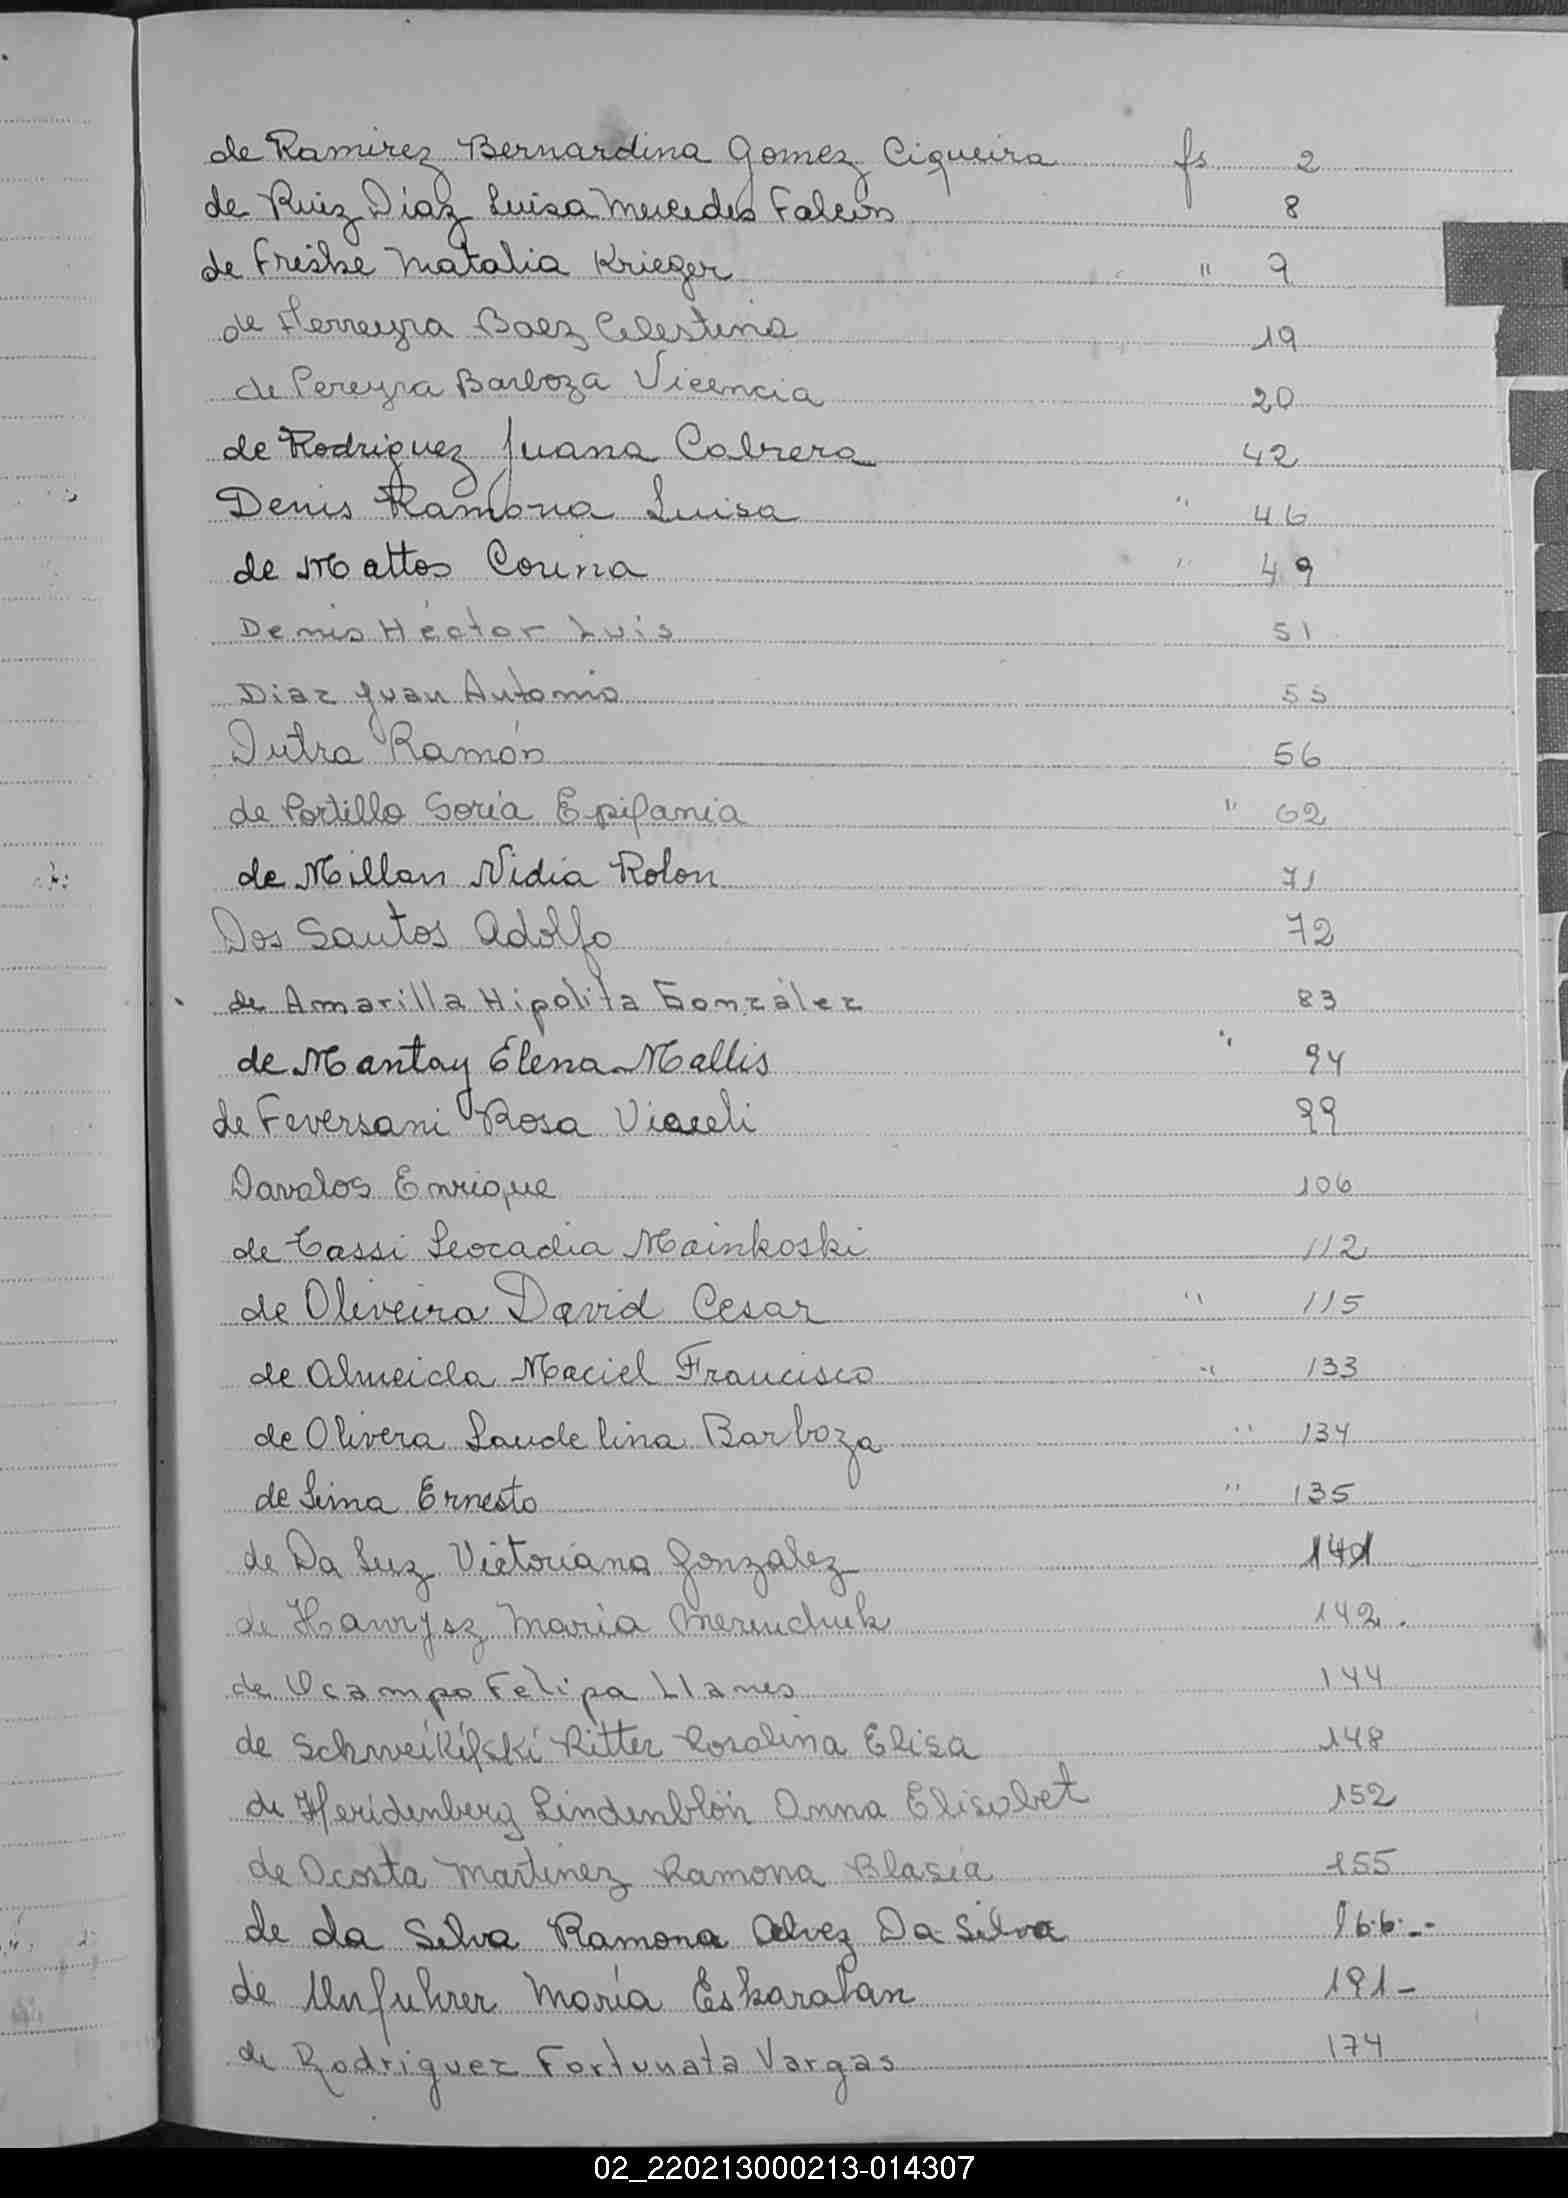 de Ramirez Bernardina Gomez Ciqueira fs 2
de Ruiz Díaz Luisa Mercedes Falcon 8
de Freske Natalia Krieger " 9
de Ferreyra Baez Celestina 19
de Pereyra Barboza Vicencia 20
de Rodriguez Juana Cabrera 42
Denis Ramona Luisa " 46
de Mattos Corina " 49
Denis Héctor Luis 51
Diaz Juan Antonio 55
Dutra Ramón 56
de Portillo Soria Epifania " 62
de Millan Nidia Rolon 71
Dos Santos Adolfo 72
de Amarilla Hipólita González 83
de Mantay Elena Mallis " 94
de Feversani Rosa Viaceli 99
Davalos Enrique 106
de Tassi Leocadia Mainkoski 112
de Oliveira David Cesar " 115
de Almeida Maciel Francisco " 133
de Olivera Laudelina Barboza " 134
de Lima Ernesto " 135
de Da Luz Victoriana Gonzalez 141
de Hawrysz María 142
de Ocampo Felipa Llanes 144
de Ritter Rosalina Elisa 148
de Heridenberg Lindenblön Anna Elisabet 152
de Acosta Martinez Ramona Blasia 155
de da Silva Ramona Alvez Da Silva 166.-
de Unfuhrer María Eskaratan 191-
de Rodriguez Fortunata Vargas 174
02_220213000213-014307